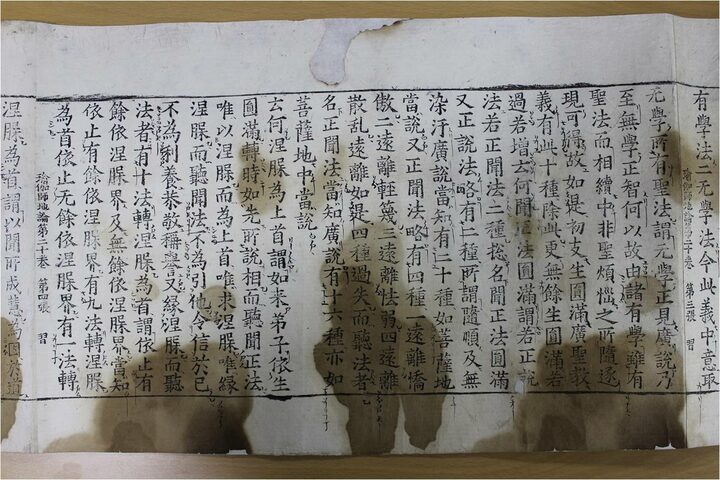 有學法二无學法今此義中意取
瑜伽師地論第二十卷 第三張 習
无學所有聖法謂无學正見廣說乃
至無學正智何以故由諸有學雖有
聖法而相續中非聖煩惱之所隨逐
現可得故如是初支生圓滿廣聖教
義有此十種除此更無餘生圓滿若
過若增云何聞正法圓滿謂若正說
法若正聞法二種揔名聞正法圓滿
又正說法略有二種所謂隨順及無
染汙廣說當知有二十種如菩薩地
當說又正聞法略有四種一遠離憍
傲二遠離輕蔑三遠離怯弱四遠離
散乱遠離如是四種過失而聽法者
名正聞法當知廣說有十六種亦如
菩薩地中當說
云何涅槃為上首謂如来弟子依生
圓滿轉時如先所說相而聽聞正法
唯以涅槃而為上首唯求涅槃唯緣
涅槃而聽聞法不為引他令信於己
不為利養恭敬稱譽又緣涅槃而聽
法者有十法轉涅槃為首謂依止有
餘依涅槃界及無餘依涅槃界當知
依止有餘依涅槃界有九法轉涅槃
為首依止无餘依涅槃界有一法轉
瑜伽師地論第二十卷 第四張 習
涅槃為首謂以聞所成慧